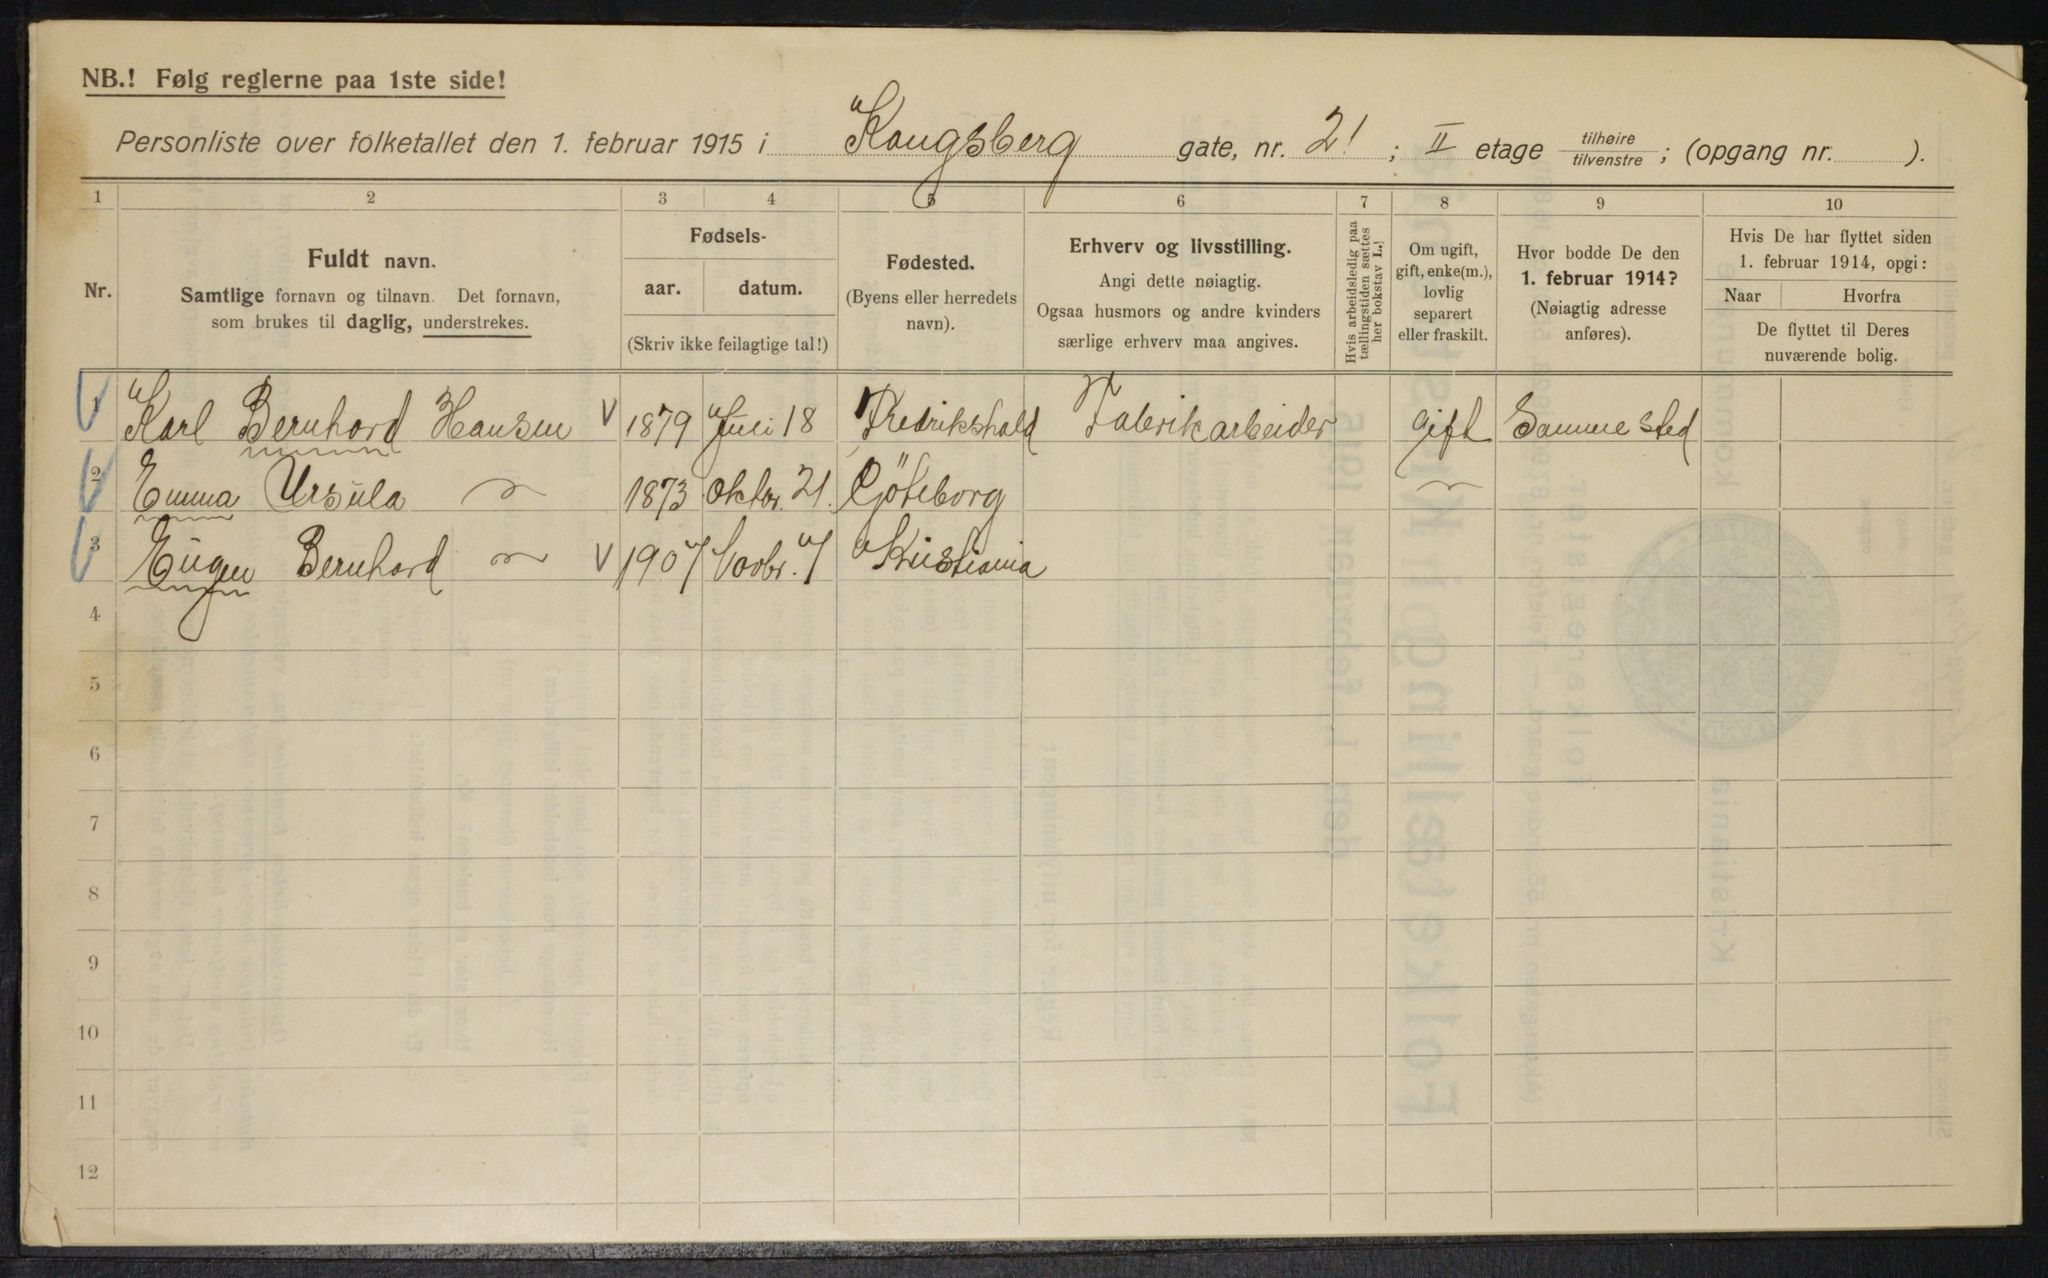 NB.! Følg reglerne paa 1ste side!
Personliste over folketallet den 1. februar 1915 i Kongsberg gate, nr. 21; II etage tilhøire/tilvenstre; (opgang nr. ).
1 2 3 4 5 6 7 8 9 10
Nr.
Fuldt navn.
Samtlige fornavn og tilnavn. Det fornavn,
som brukes til daglig, understrekes.
Fødsels-
aar. datum.
(Skriv ikke feilagtige tal!)
Fødested.
(Byens eller herredets
navn).
Erhverv og livsstilling.
Angi dette nøiagtig.
Ogsaa husmors og andre kvinders
særlige erhverv maa angives.
Hvis arbeidsledig paa
tællingstiden sættes
her bokstav L.
Om ugift,
gift, enke(m.),
lovlig
separert
eller fraskilt.
Hvor bodde De den
1. februar 1914?
(Nøiagtig adresse
anføres).
Hvis De har flyttet siden
1. februar 1914, opgi:
Naar Hvorfra
De flyttet til Deres
nuværende bolig.
1 Karl Bernhard Hansen 1879 Juli 18 Fredrikshald Fabrikarbeider gift Samme sted
2 Emma Ursula 〃 1873 oktbr. 21. Göteborg 〃
3 Eugen Bernhard 〃 1907 Novbr. 7 Kristiania
4
5
6
7
8
9
10
11
12